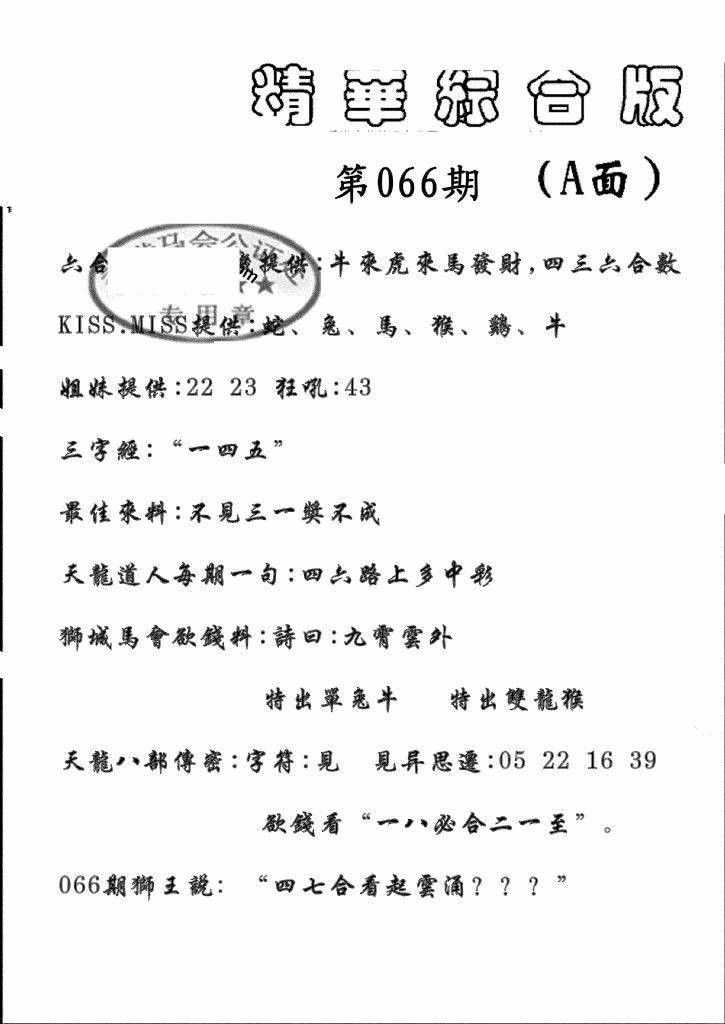 精華綜合版
第066期 (A面)
六合 提供:牛來虎來馬發財,四三六合數
KISS.MISS提供:蛇、兔、馬、猴、鷄、牛
專用章
姐妹提供:22 23 狂吼:43
三字經:“一四五”
最佳來料:不見三一獎不成
天龍道人每期一句:四六路上多中彩
獅城馬會欲錢料:詩曰:九霄雲外
特出單兔牛 特出雙龍猴
天龍八部傳密:字符:見 見异思遷:05 22 16 39
欲錢看“一八必合二一至”。
066期獅王說: “四七合看起雲涌???”